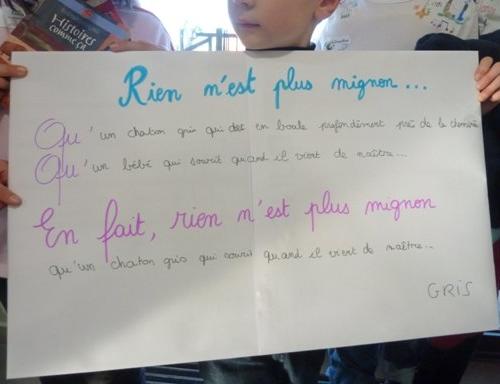 Histoires
comme ça
Rien n'est plus mignon...
Qu'un chaton gris qui dort en boule profondément près de la cheminée
Qu'un bébé qui sourit quand il vient de naître...
En fait, rien n'est plus mignon
qu'un chaton gris qui sourit quand il vient de naître...
GRIS